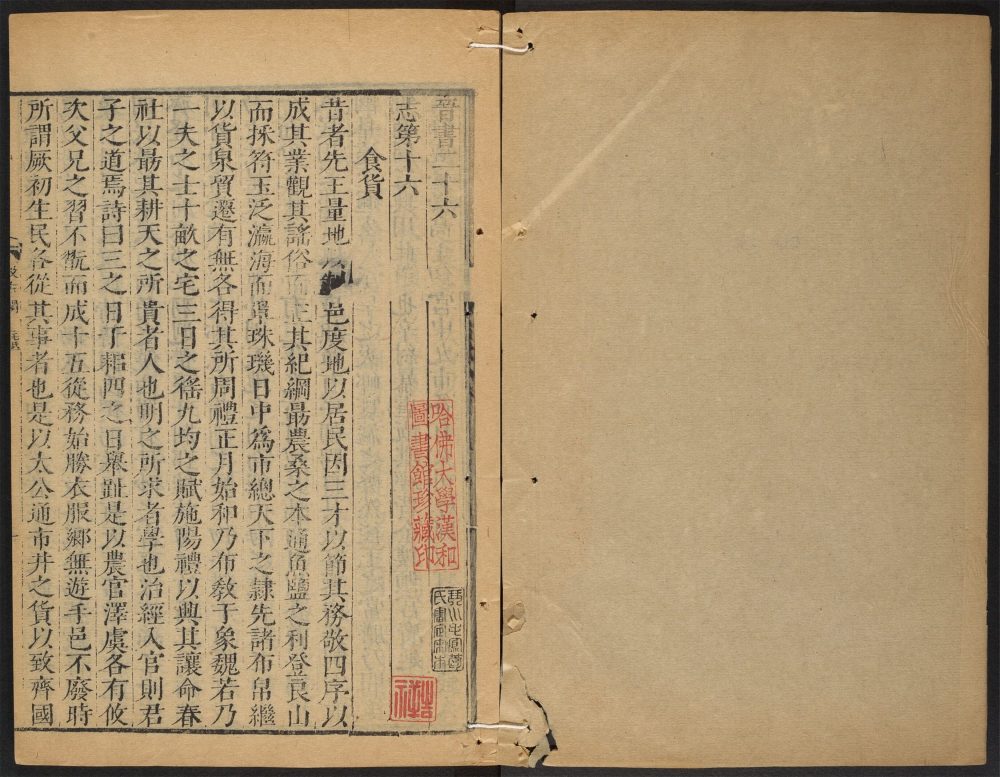 晉書二十六
志第十六
食貨
昔者先王量地以制邑度地以居民因三才以節其務敬四序以
成其業觀其謠俗而正其紀綱最農桑之本通魚鹽之利登良山
而採符玉泛瀛海而罩珠璣日中爲市總天下之隷先諸布帛繼
以貨泉貿遷有無各得其所周禮正月始和乃布教于象魏若乃
一夫之士十畝之宅三日之徭九均之賦施陽禮以興其讓命春
社以勗其耕天之所貴者人也明之所求者學也治經入官則君
子之道焉詩曰三之日于耜四之日舉趾是以農官澤虞各有攸
次父兄之習不翫而成十五從務始勝衣服鄉無遊手邑不廢時
所謂厥初生民各從其事者也是以太公通市井之貨以致齊國
哈佛大學漢和
圖書館珍藏印